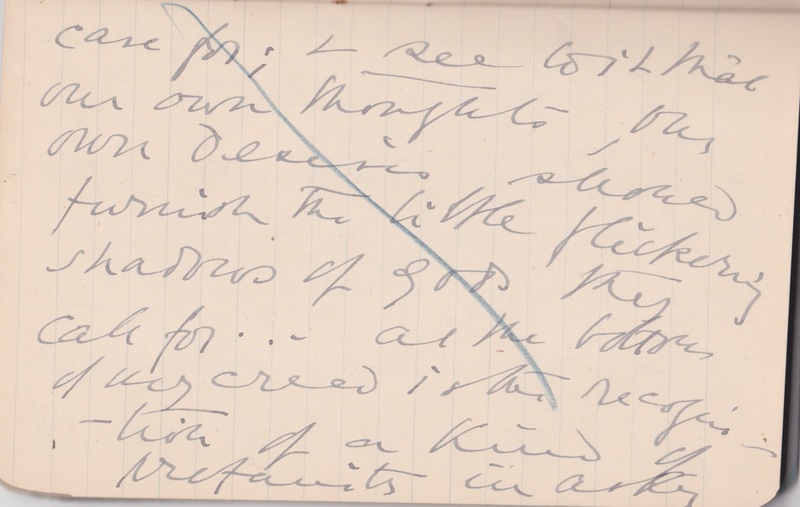 care for; & see to it that
our own thoughts, our
own desires should
furnish the little flickering
shadows of gods they
call for... at the bottom
of my creed is the recogni-
-tion of a kind of
profanity in asking